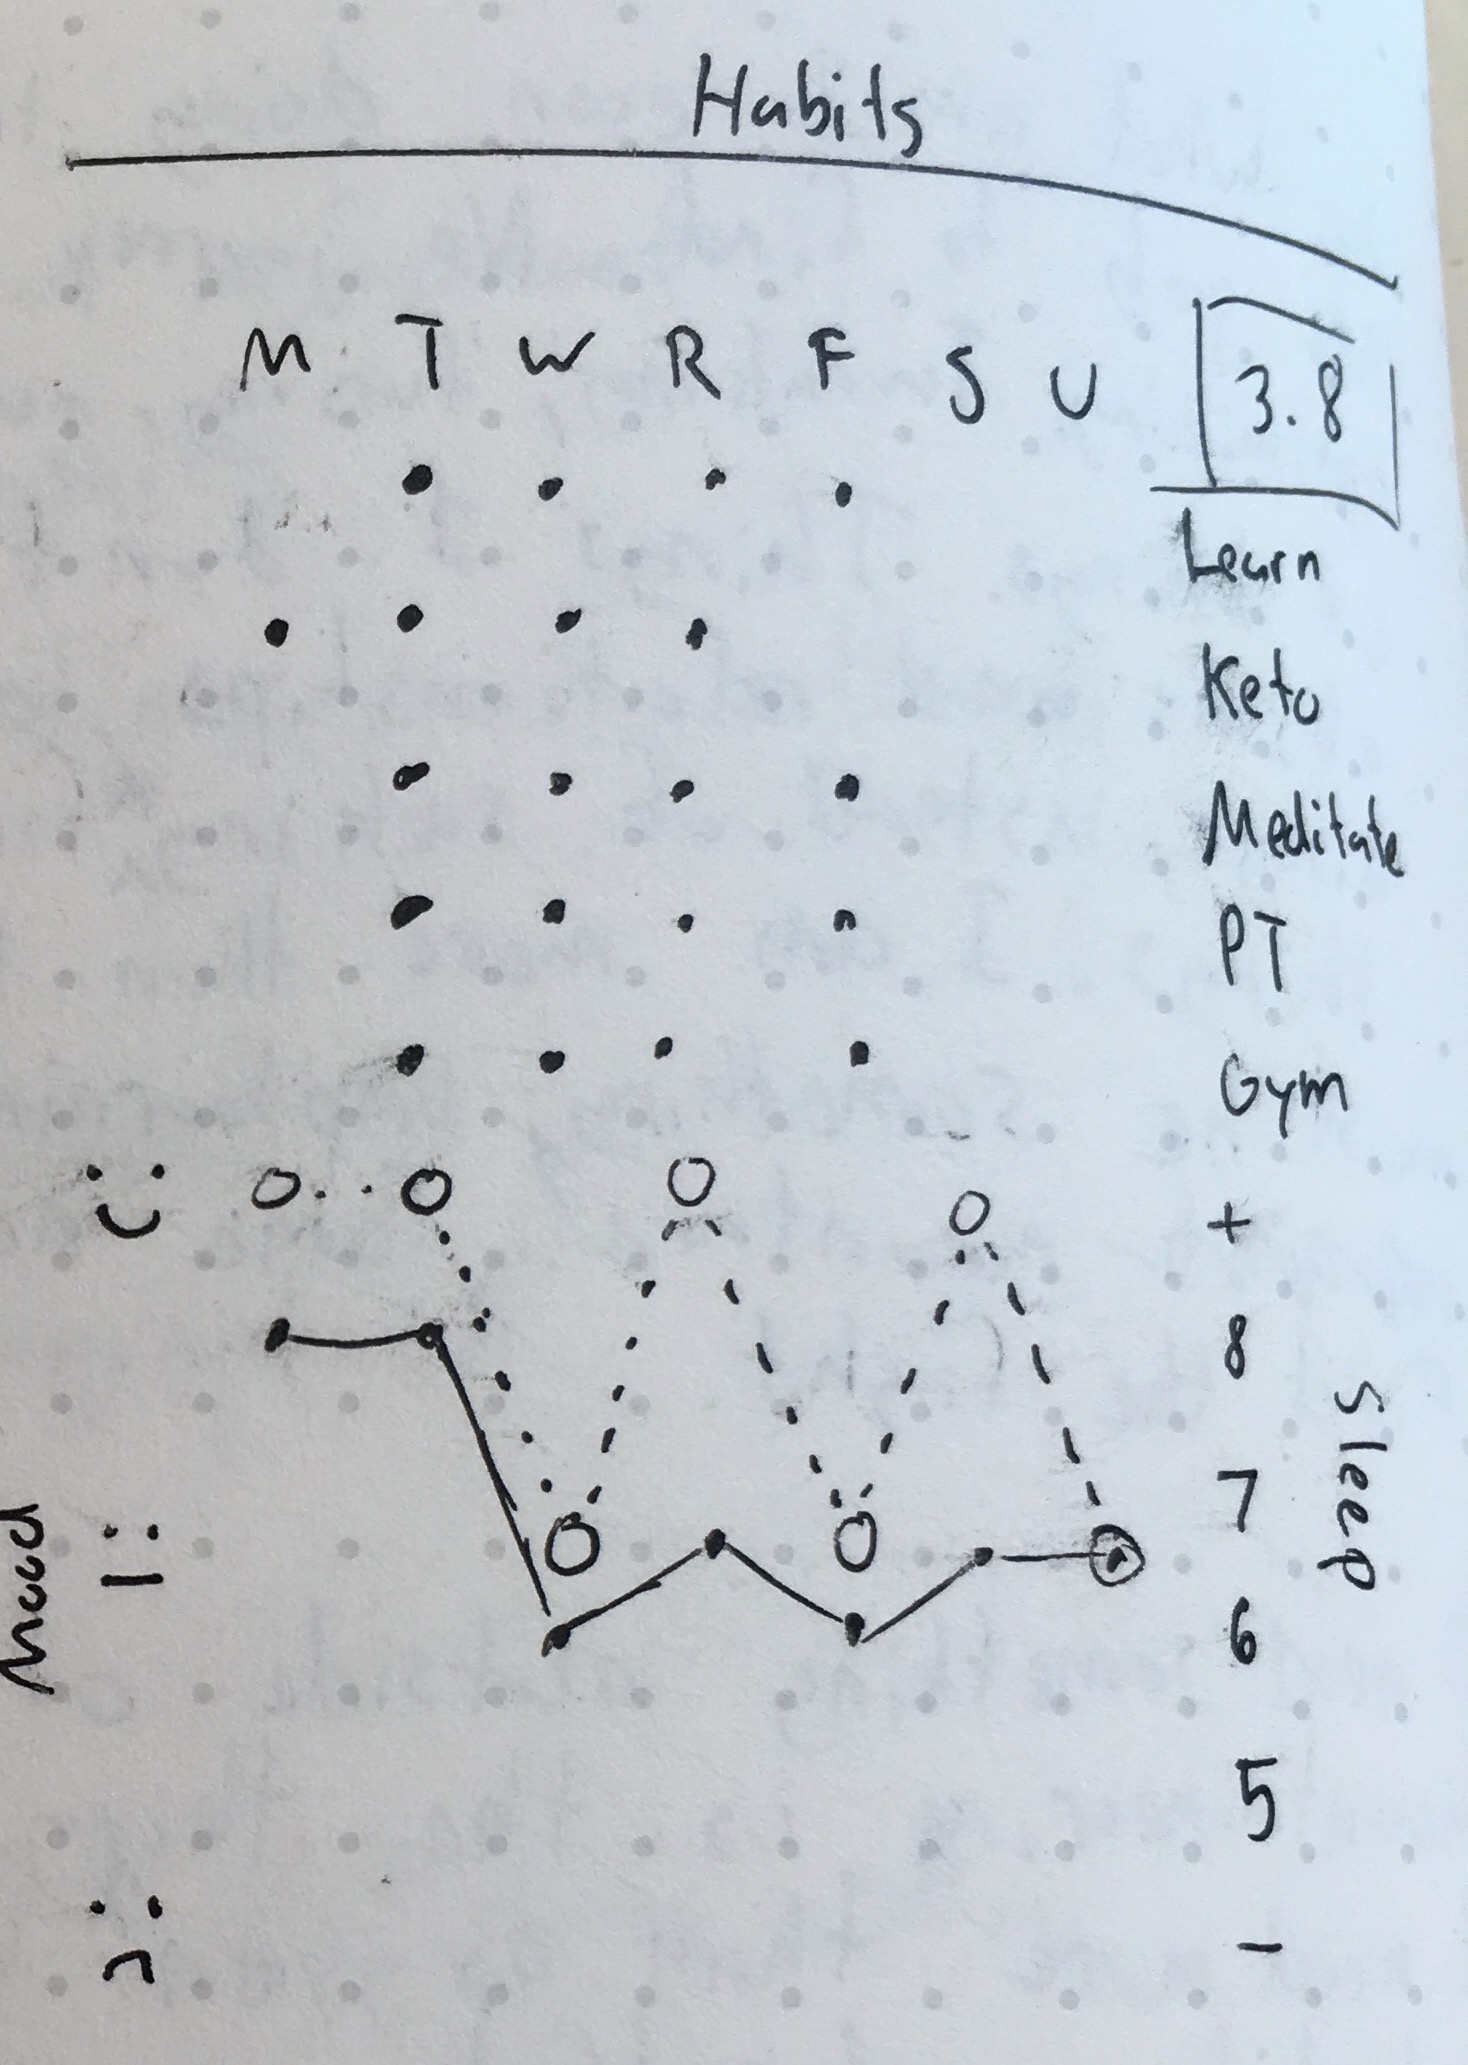 Habits
M T W R F S U 3.8
Learn
Keto
Meditate
PT
Gym
+
8
7
6
5
-
Sleep
Mood